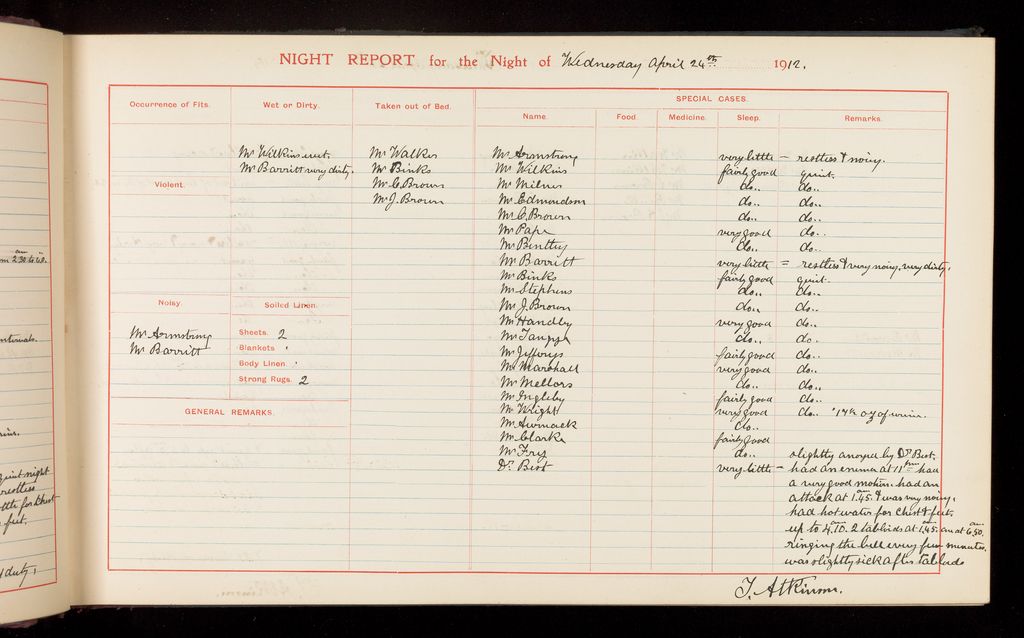 NIGHT REPORT for the Night of Wednesday April 24th 1912.
Occurrence of Fits.
Wet or Dirty.
Mr Wilkins wet.
Mr Barritt very dirty.
Taken out of Bed.
Mr Walker
Mr Binks
Mr C. Brown
Mr J. Brown
Violent.
Noisy.
Mr Armstrong
Mr Barritt
Soiled Linen.
Sheets. 2
Blankets
Body Linen.
Strong Rugs. 2
GENERAL REMARKS.
SPECIAL CASES.
Name. Food. Medicine. Sleep. Remarks.
Mr Armstrong very little = restless & noisy.
Mr Wilkins fairly good quiet.
Mr Milner do.. do..
Mr Edmondson do.. do..
Mr C. Brown do.. do..
Mr Pape very good do..
Mr Bentley do.. do..
Mr Barritt very little = restless & very noisy, very dirty.
Mr Binks fairly good quiet.
Mr Stephens do.. do..
Mr J. Brown do.. do..
Mr Handby very good do..
Mr do.. do.
Mr Jefferys fairly good do..
Mr Marshall very good do..
Mr Mellors do.. do..
Mr Ingleby fairly good do..
Mr Wright very good do.. oz of urine.
Mr do..
Mr Clarke fairly good
Mr Fry do.. slightly annoyed by Dr Best.
Dr Best very little = had an enema at 11 pm had
a very good motion. had an
attack at 1.45 am & was very noisy.
had hot water for chest & feet.
up to 4.10. am 2 tabloids at 1.45. am at 6.50. am
ringing the bell every few minutes.
was slightly sick after tabloids
T. Atkinson.
am
m 2.30 to 6.0.
quiet night
restless
ttle for chest
feet.
duty.